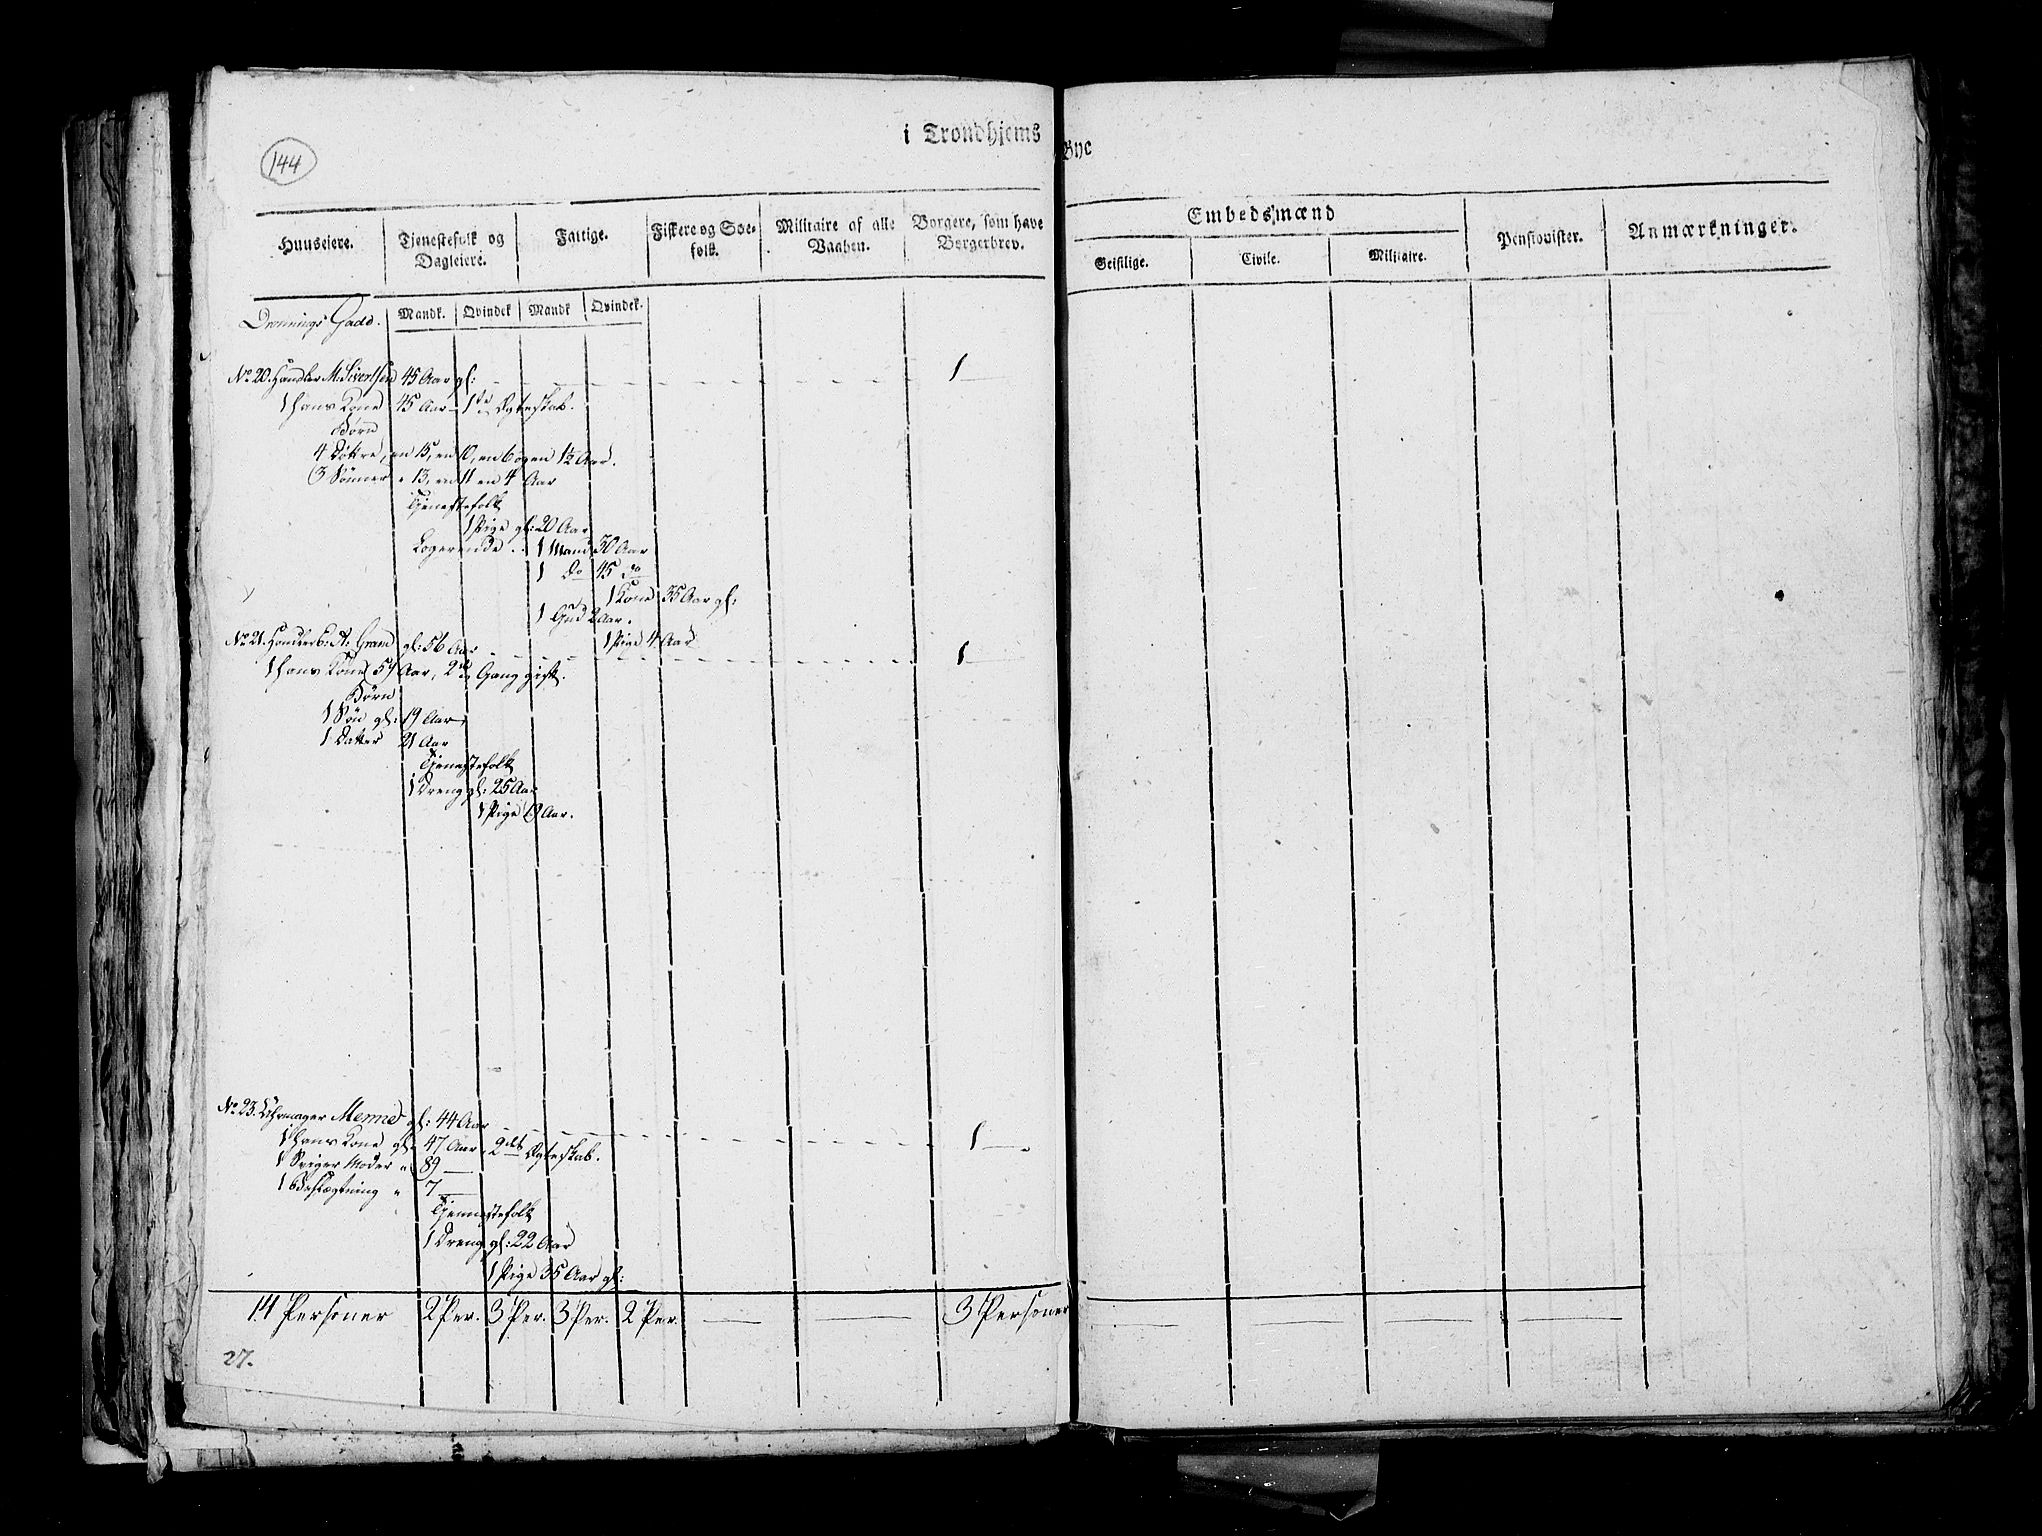 144
i Trondhjems Bye
Huuseiere.
Tjenestefolk og Dagleiere.
Fattige.
Fiskere og Søefolk.
Militaire af alle Vaaben.
Borgere, som have Borgerbrev.
Embedsmænd
Geistlige.
Civile.
Militaire.
Pensionister.
Anmærkninger.
Mandk.
Qvindek
Mandk
Qvindek.
Dronnings Gade.
No 20. Handler M. Sivertsen 45 Aar gl: 1
1 Hans Kone 45 Aar 1te Ægteskab.
Børn
4 Døttre, en 15, en 10, en 6 og en 1½ Aar.
3 Sønner " 13, en 11 en 4 Aar
Tjenestefolk
1 Pige gl: 20 Aar
Logerende .. 1 Mand 50 Aar
1 do 45 do
1 Kone 35 Aar gl:
1 Gud 2 Aar.
1 Pige 4 Aar
No 21. A: Gram gl: 56 Aar 1
1 Hans Kone 54 Aar, 2den Gang gift.
Børn
1 Søn gl: 19 Aar
1 Datter 21 Aar
Tjenestefolk
1 Dreng gl: 25 Aar
1 Pige 19 Aar.
No 23. Uhrmager Menne gl: 44 Aar 1
1 Hans Kone gl: 47 Aar, 2det Ægteskab.
1 Sviger Moder " 89
1 Beslægtning " 7
Tjennestefolk
1 Dreng gl: 22 Aar
1 Pige 35 Aar gl:
14 Personer 2 Per. 3 Per. 3 Per. 2 Per. 3 Personer
27.